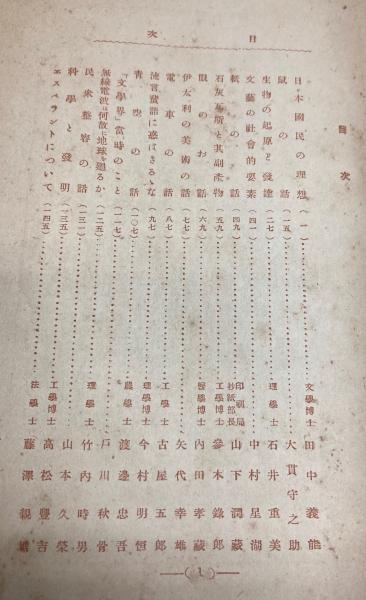 目次
目次
日本國民の理想(一)文學博士田中義能
鼠の話(一五)大貫守之助
生物の起原と發達(二七)理學士石井重美
文藝の社會的要素(四一)中村星湖
紙の話(四九)印刷局抄紙部長山下潤藏
石灰瓦斯と其副產物(五九)工學博士參木錄郎
眼のお話(六九)醫學博士內田孝藏
伊太利の美術の話(七七)矢代幸雄
電車の話(八七)工學士古屋五郎
流言蜚語に惑はさるゝな(九七)理學博士今村明恒
青空の話(一〇七)農學士渡邊忠吾
「文學界」當時のこと(一一七)戶川秋骨
無線電波は何故に地球を廻るか(一二五)理學士竹內時男
民衆整容の話(一三一)山本久榮
科學と發明(一三五)工學博士高松豐吉
エスペラントについて(一四五)法學士藤澤親雄
(1)